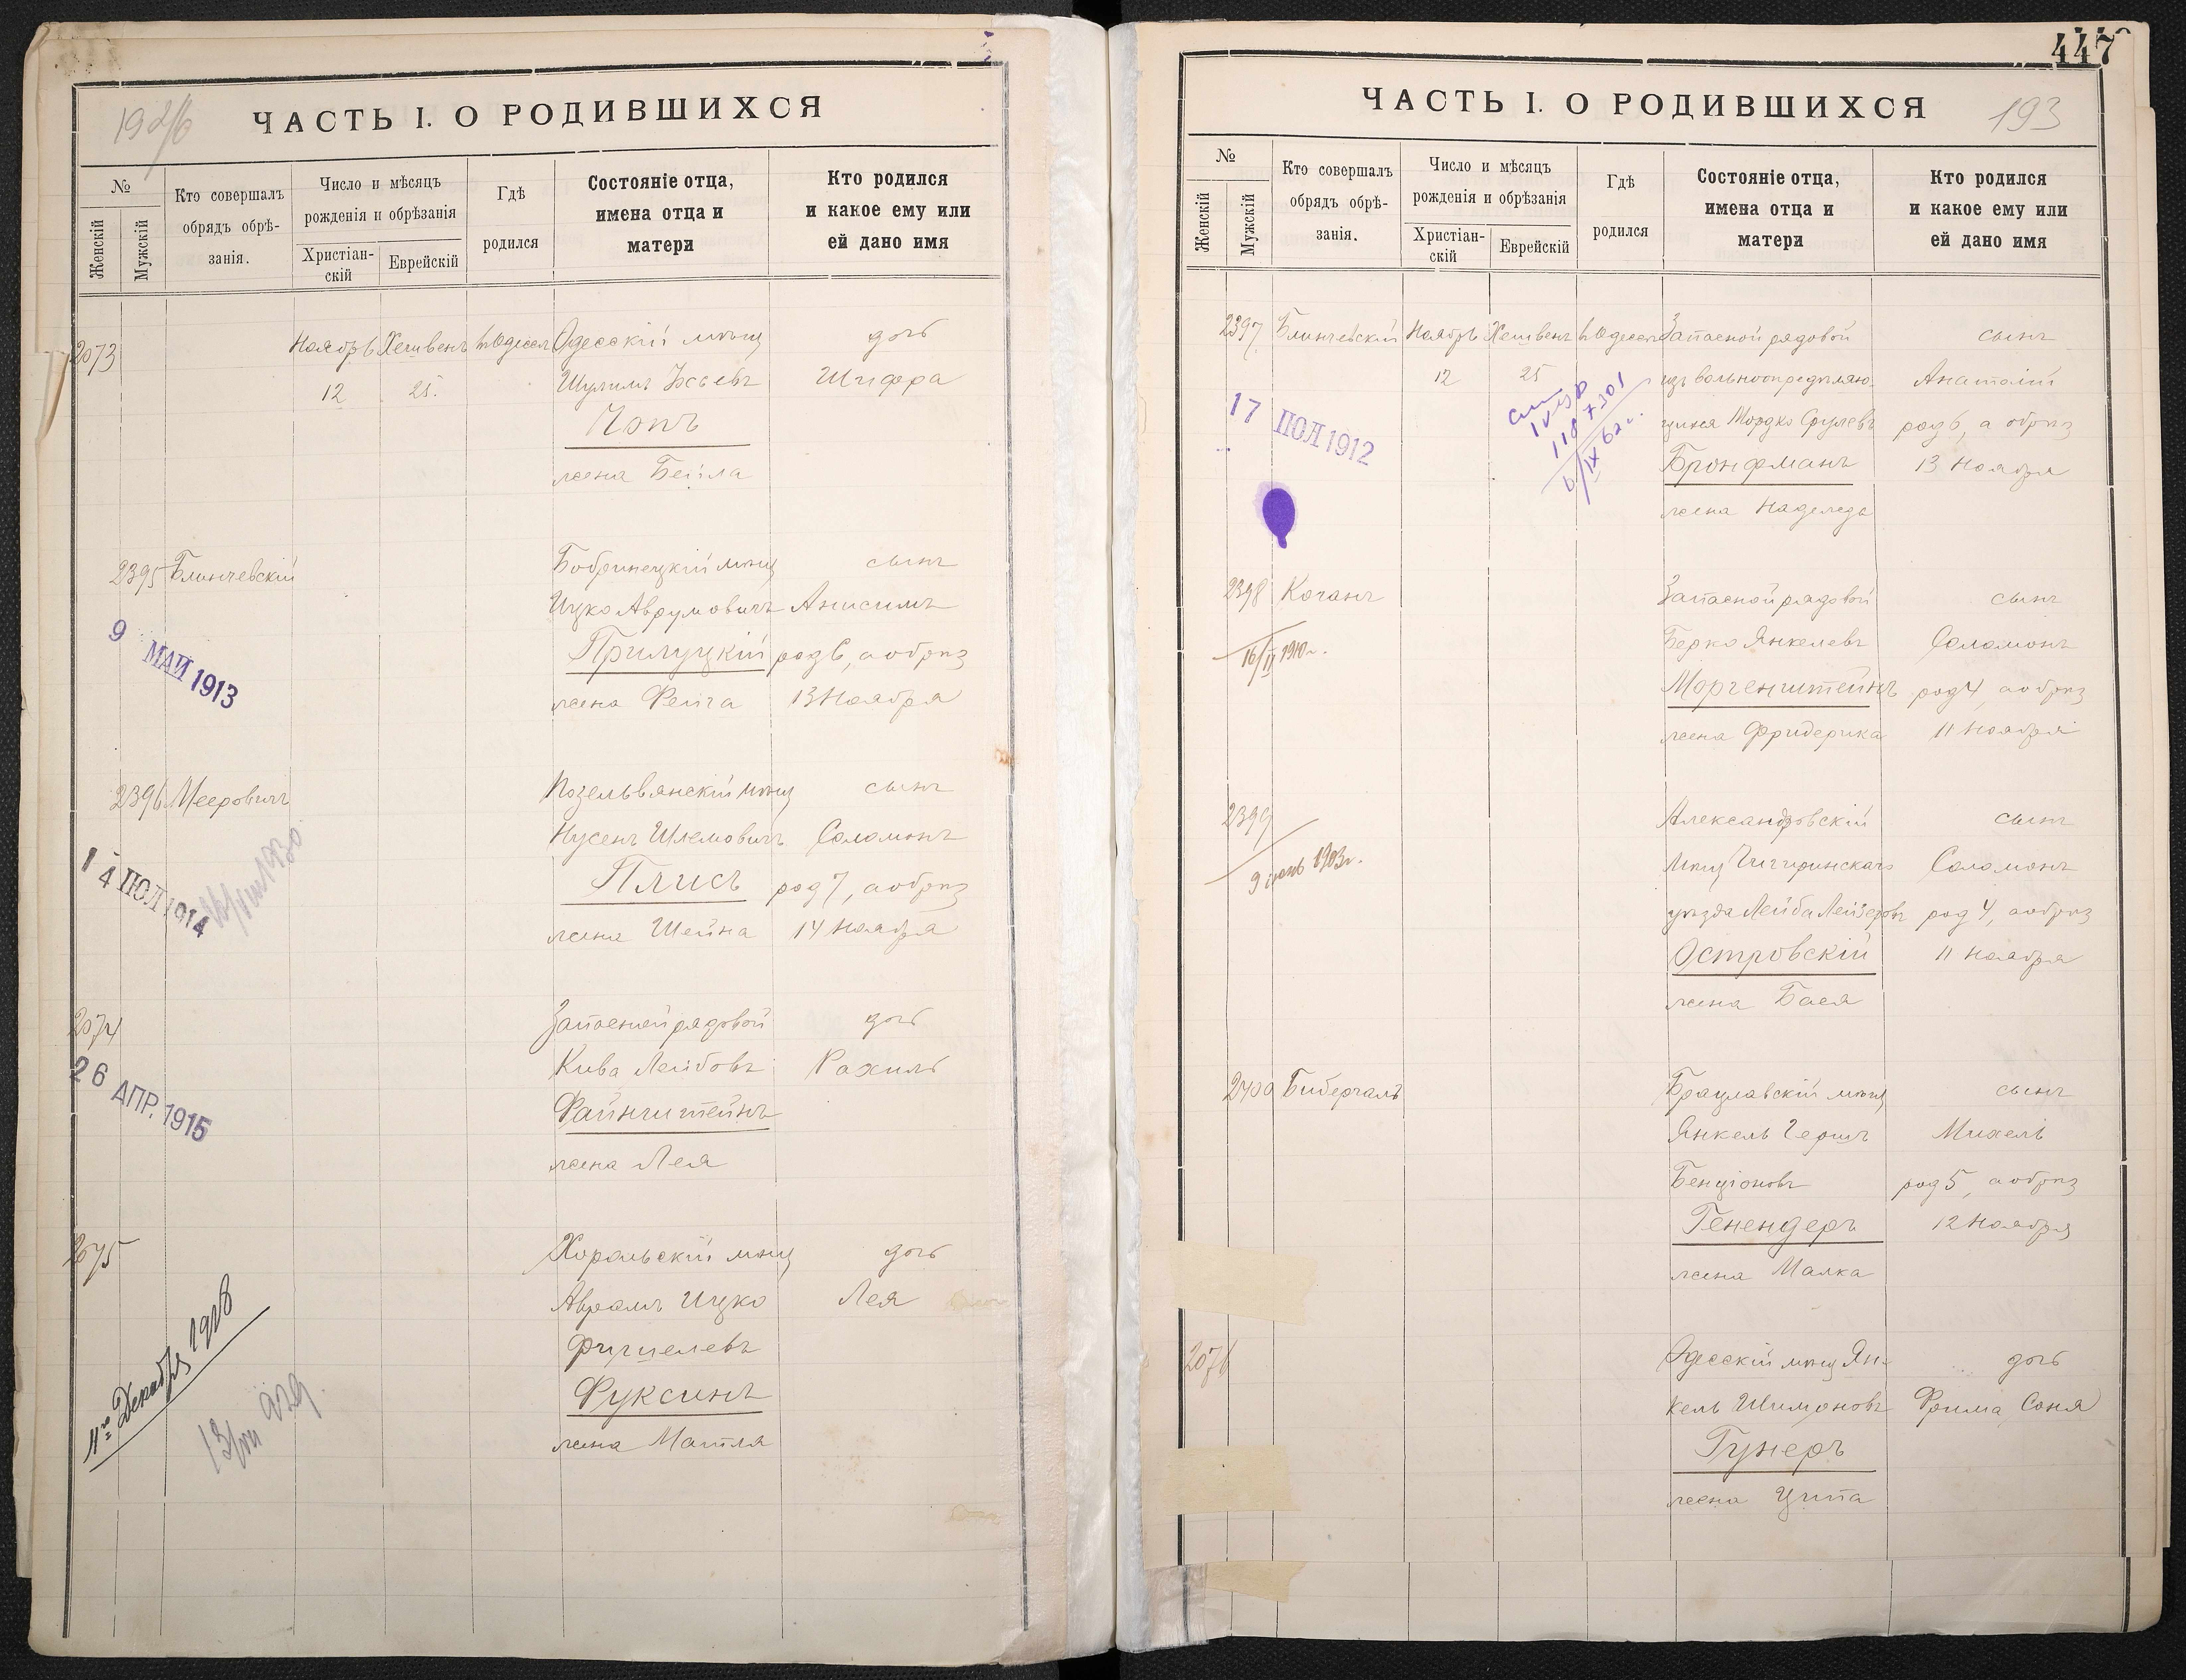 ЧАСТЬ I. О РОДИВШИХСЯ
№
Женскій
Мужскій
Кто совершалъ
обрядъ обрѣ-
занія.
Число и мѣсяцъ
рожденія и обрѣзанія
Христіан-
скій
Еврейскій
Гдѣ
родился
Состояніе отца,
имена отца и
матери
Кто родился
и какое ему или
ей дано имя
2073
Ноябрь Хешвенъ въ Одессѣ Одесскій мѣщ дочь
12 25. Шулимъ Шифра
Чопъ
жена Бейла
2395 Блинчевскій Бобринецкій мѣщ сынъ
Ицко Аврумовичъ Анисимъ
Прилуцкій род 6, а обрѣз
жена Фейга 13 Ноября
9 МАЙ 1913
2396 Мееровичъ мѣщ сынъ
Нусенъ Шлемовичъ Соломонъ
Плисъ род 7, а обрѣз
жена Шейна 14 Ноября
14 ІЮЛ 1914
2074 Запасной рядовой дочь
Кива Лейбовъ Рахиль
Файнштейнъ
жена Лея
26 АПР. 1915
2075 Хорольскій мѣщ дочь
Аврамъ Ицко Лея
Фишелевъ
Фуксинъ
жена Матля
11го Декабря
447
ЧАСТЬ I. О РОДИВШИХСЯ
193
№
Женскій
Мужскій
Кто совершалъ
обрядъ обрѣ-
занія.
Число и мѣсяцъ
рожденія и обрѣзанія
Христіан-
скій
Еврейскій
Гдѣ
родился
Состояніе отца,
имена отца и
матери
Кто родился
и какое ему или
ей дано имя
2397 Блинчевскій Ноябрь Хешвенъ въ Одессѣ Запасной рядовой сынъ
12 25 изъ вольноопредѣляю- Анатолій
щихся Мордко Срулевъ род 6, а обрѣз
Бронфманъ 13 Ноября
жена Надежда
17 ІЮЛ 1912
2398 Коганъ Запасной рядовой сынъ
Берко Янкелевъ Соломонъ
Моргенштейнъ род 4, а обрѣз
жена Фридерика 11 Ноября
16/II 1910г.
2399 Александровскій сынъ
мѣщ Чигиринскаго Соломонъ
уѣзда Лейба Лейзеровъ род 4, а обрѣз
Островскій 11 Ноября
жена Бася
1903г.
2400 Бибергалъ Брацлавскій мѣщ сынъ
Янкель Гершъ Михель
Бенціоновъ род 5, а обрѣз
Генендеръ 12 Ноября
жена Малка
2076 Одесскій мѣщ Ян- дочь
кель Шимоновъ Фрима Соня
Гунеръ
жена Ципа